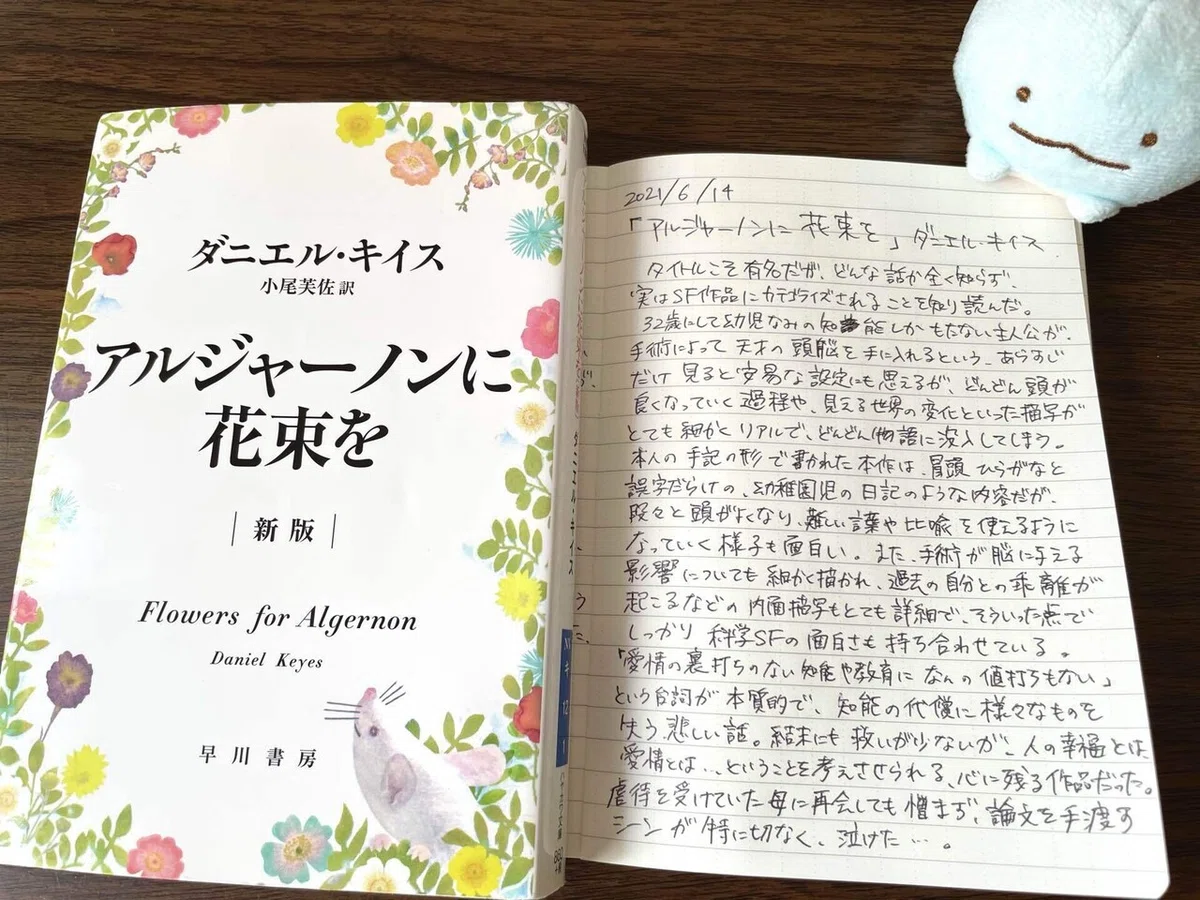 ダニエル・キイス
小尾芙佐 訳
アルジャーノンに
花束を
新版
Flowers for Algernon
Daniel Keyes
早川書房
2021/6/14
「アルジャーノンに 花束を」ダニエル・キイス
タイトルこそ有名だが、どんな話か全く知らず、
実はSF作品にカテゴライズされることを知り読んだ。
32歳にして幼児なみの知能しかもたない主人公が、
手術によって天才の頭脳を手に入れるという、あらすじ
だけ見ると安易な設定にも思えるが、どんどん頭が
良くなっていく過程や、見える世界の変化といった描写が
とても細かくリアルで、どんどん物語に没入してしまう。
本人の手記の形で書かれた本作は、冒頭ひらがなと
誤字だらけの、幼稚園児の日記のような内容だが、
段々と頭がよくなり、難しい言葉や比喩を使えるように
なっていく様子も面白い。また、手術が脳に与える
影響についても細かく描かれ、過去の自分との乖離が
起こるなどの内面描写もとても詳細で、そういった点で
しっかり科学SFの面白さも持ち合わせている。
「愛情の裏打ちのない知能や教育になんの値打ちもない」
という台詞が本質的で、知能の代償に様々なものを
失う悲しい話。結末にも救いが少ないが、人の幸福とは
愛情とは…ということを考えさせられる、心に残る作品だった。
虐待を受けていた母に再会しても憎まず、論文を手渡す
シーンが特に切なく、泣けた…。
キ
12
1
ハヤカワ文庫